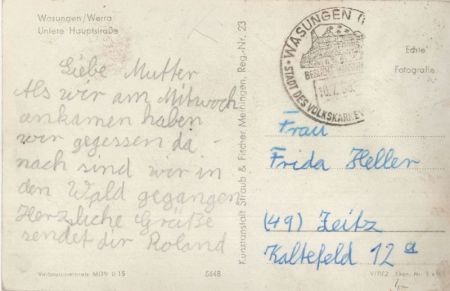 Wasungen/Werra
Untere Hauptstraße
Liebe Mutter
Als wir am Mitwoch
ankamen haben
wir gegessen da-
nach sind wir in
den Wald gegangen
Herzliche Grüße
sendet dir Roland
Kunstanstalt Straub & Fischer Meiningen, Reg.-Nr. 23
WASUNGEN
STADT DES VOLKSKARNEV
Echte
Fotografie
Frau
Frida Heller
(49) Zeitz
Kaltefeld 12 a
5648